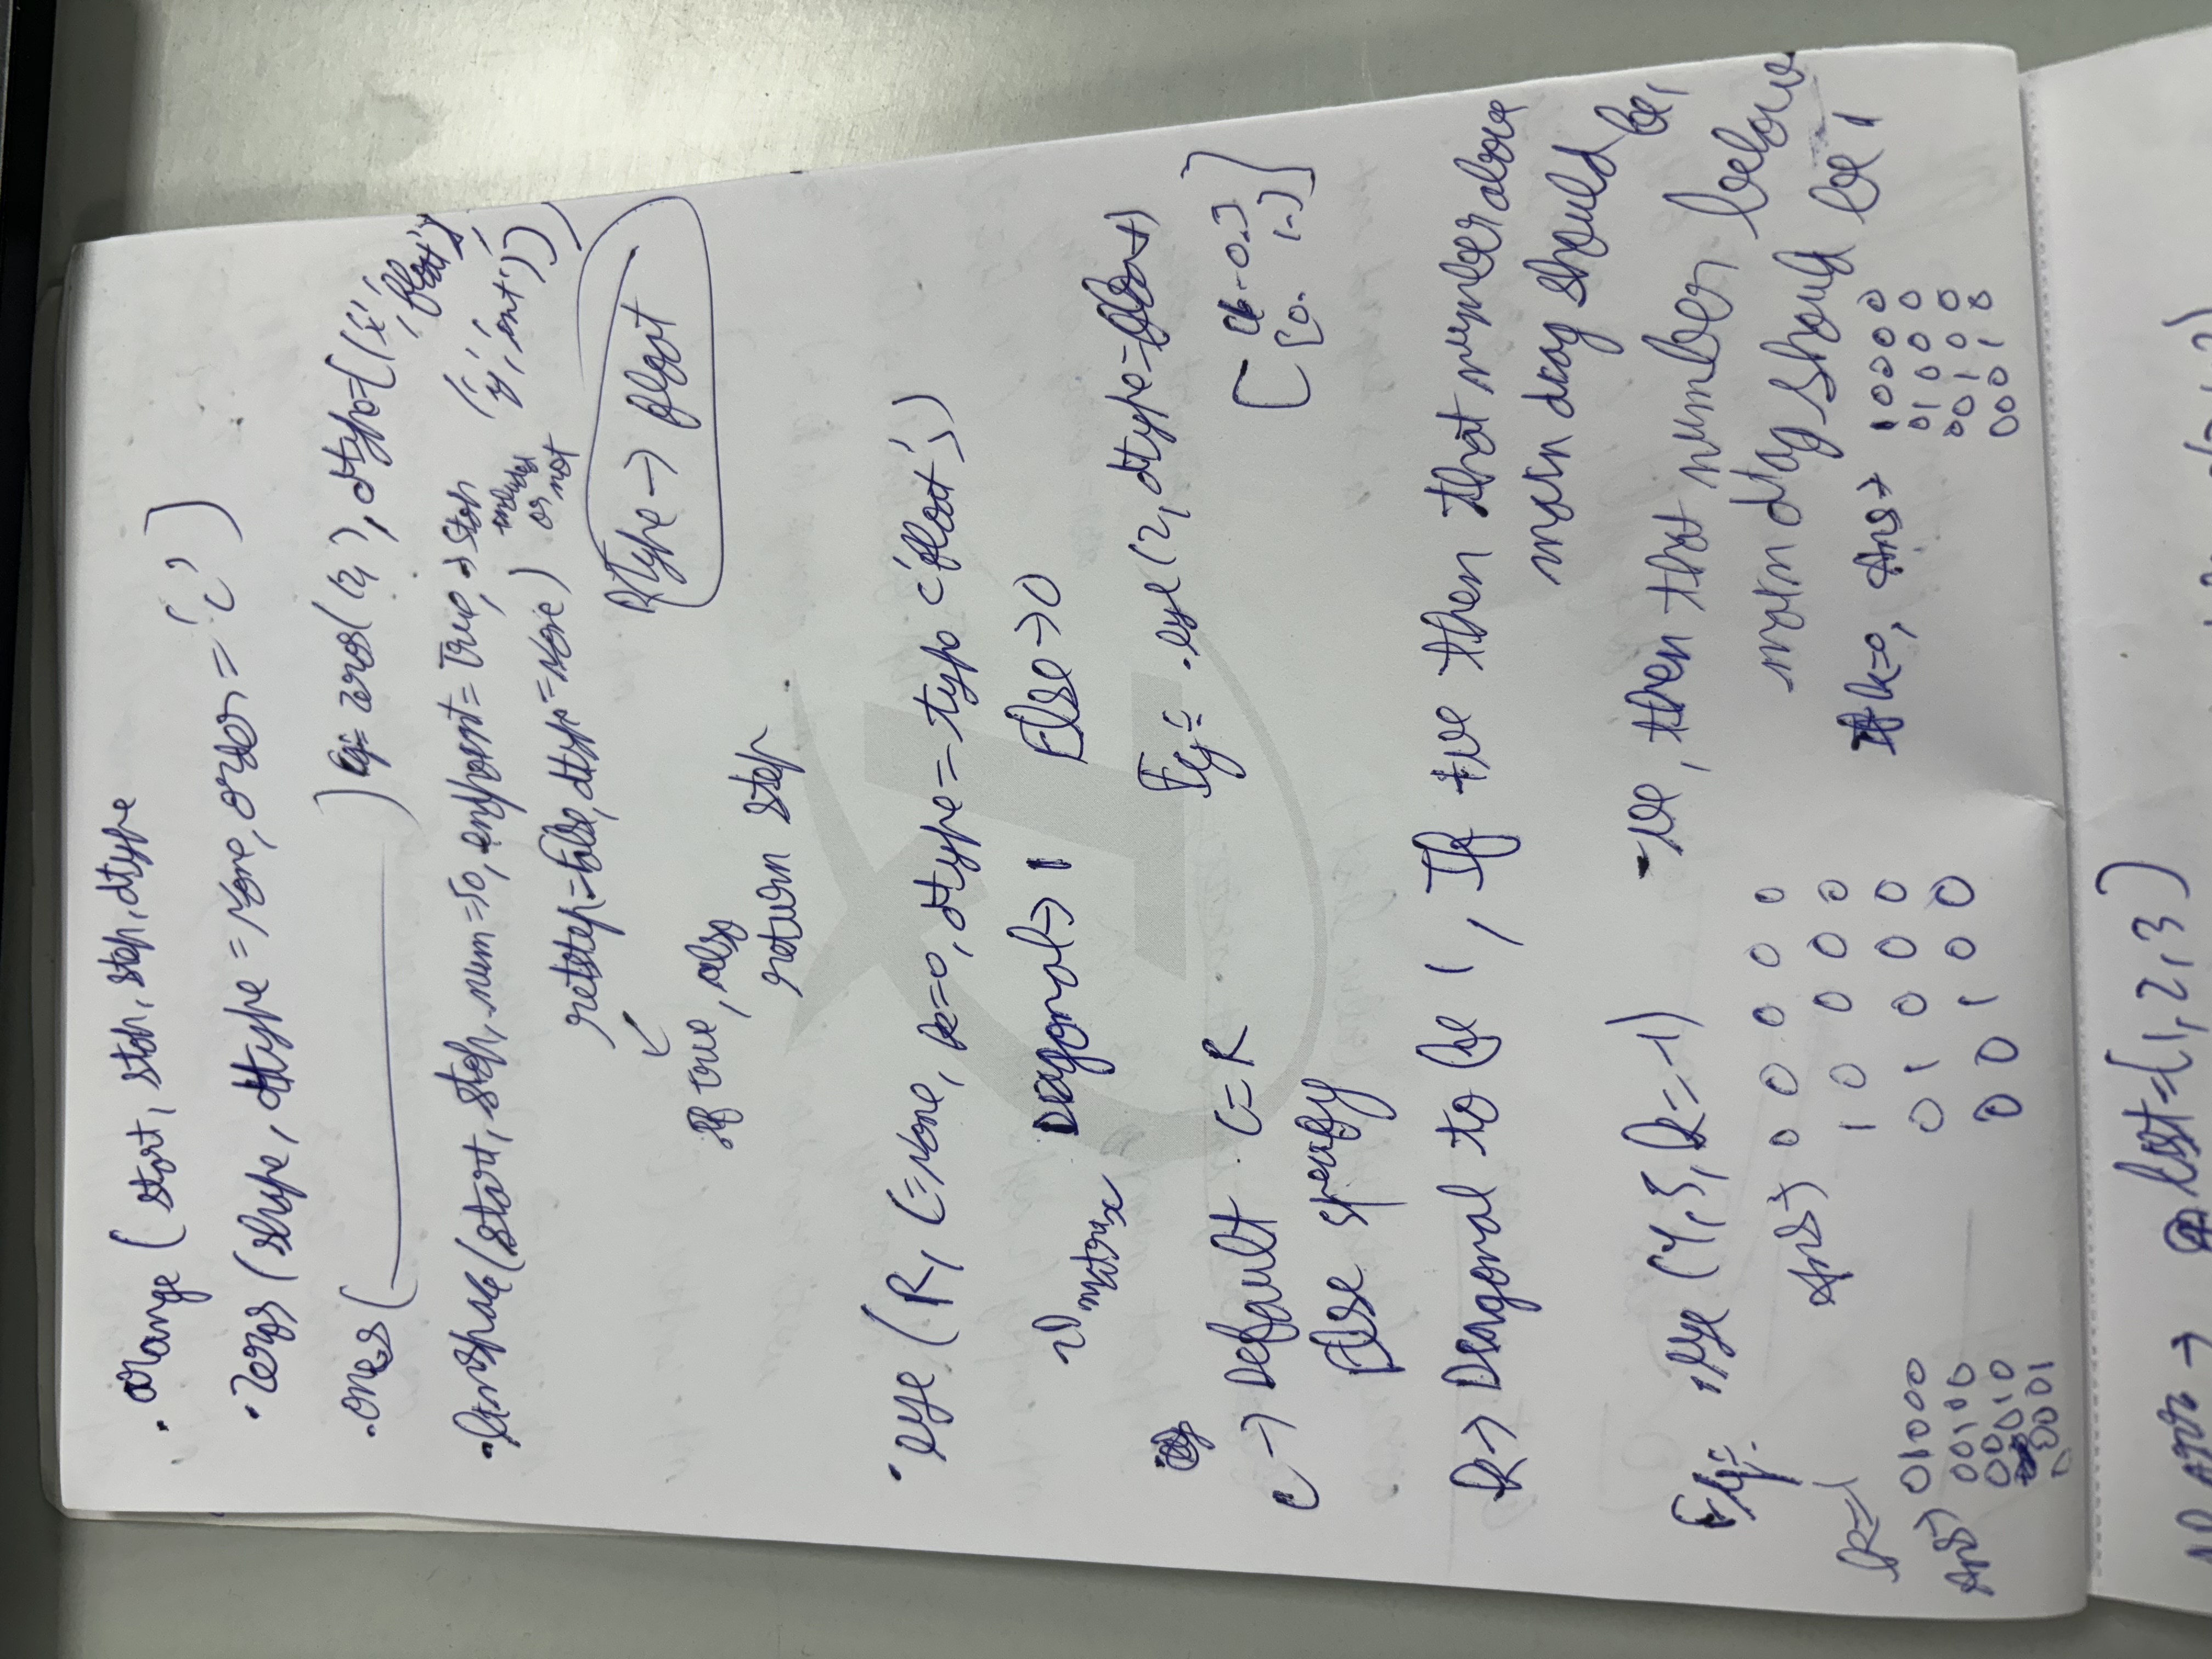 . arange ( start, stop, step, dtype
. zeros (shape, dtype = None, order = 'C' )
. ones ( ________ ) Eg:- zeros( (2, ), dtype=[('x', 'float'),
('y', 'int')])
. linspace (start, stop, num=50, endpoint = True, → stop included or not
retstep=False, dtype = None )
↙
If true, also
return step
Dtype → float
. eye ( R, C=None, k=0, dtype = type <'float'> )
2D matrix Diagonal → 1 Else → 0
C → Default C=R
Else specify
Eg:- .eye (2, dtype=float)
[ [1. 0.]
[0. 1.] ]
k → Diagonal to be 1, If +ve then that number above
main diag should be 1
-ve, then that number below
main diag should be 1
Eg:- .eye (4, 5, k=-1)
Ans → 0 0 0 0 0
1 0 0 0 0
0 1 0 0 0
0 0 1 0 0
k=1
Ans → 0 1 0 0 0
0 0 1 0 0
0 0 0 1 0
0 0 0 0 1
If k=0, Ans → 1 0 0 0 0
0 1 0 0 0
0 0 1 0 0
0 0 0 1 0
→ list = [1, 2, 3]